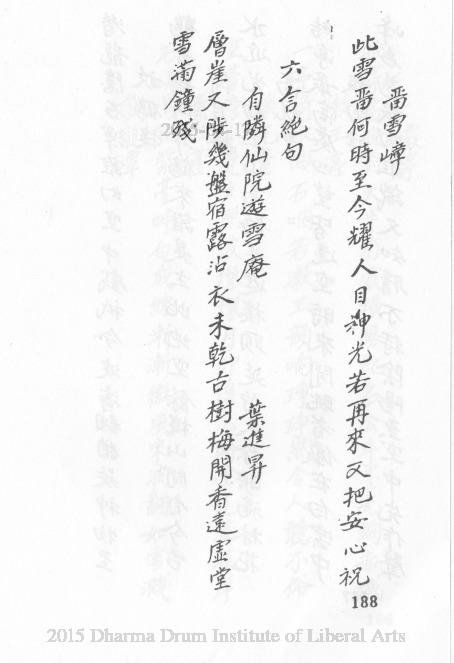 畱雪嶂
此雪畱何時至今耀人目神光若再來又把安心祝
六言絶句
自隣仙院遊雪庵
葉進昇
層崖又陟幾盤宿露沾衣未乾古樹梅開香遠虛堂
雪滿鐘殘
188
2015 Dharma Drum Institute of Liberal Arts